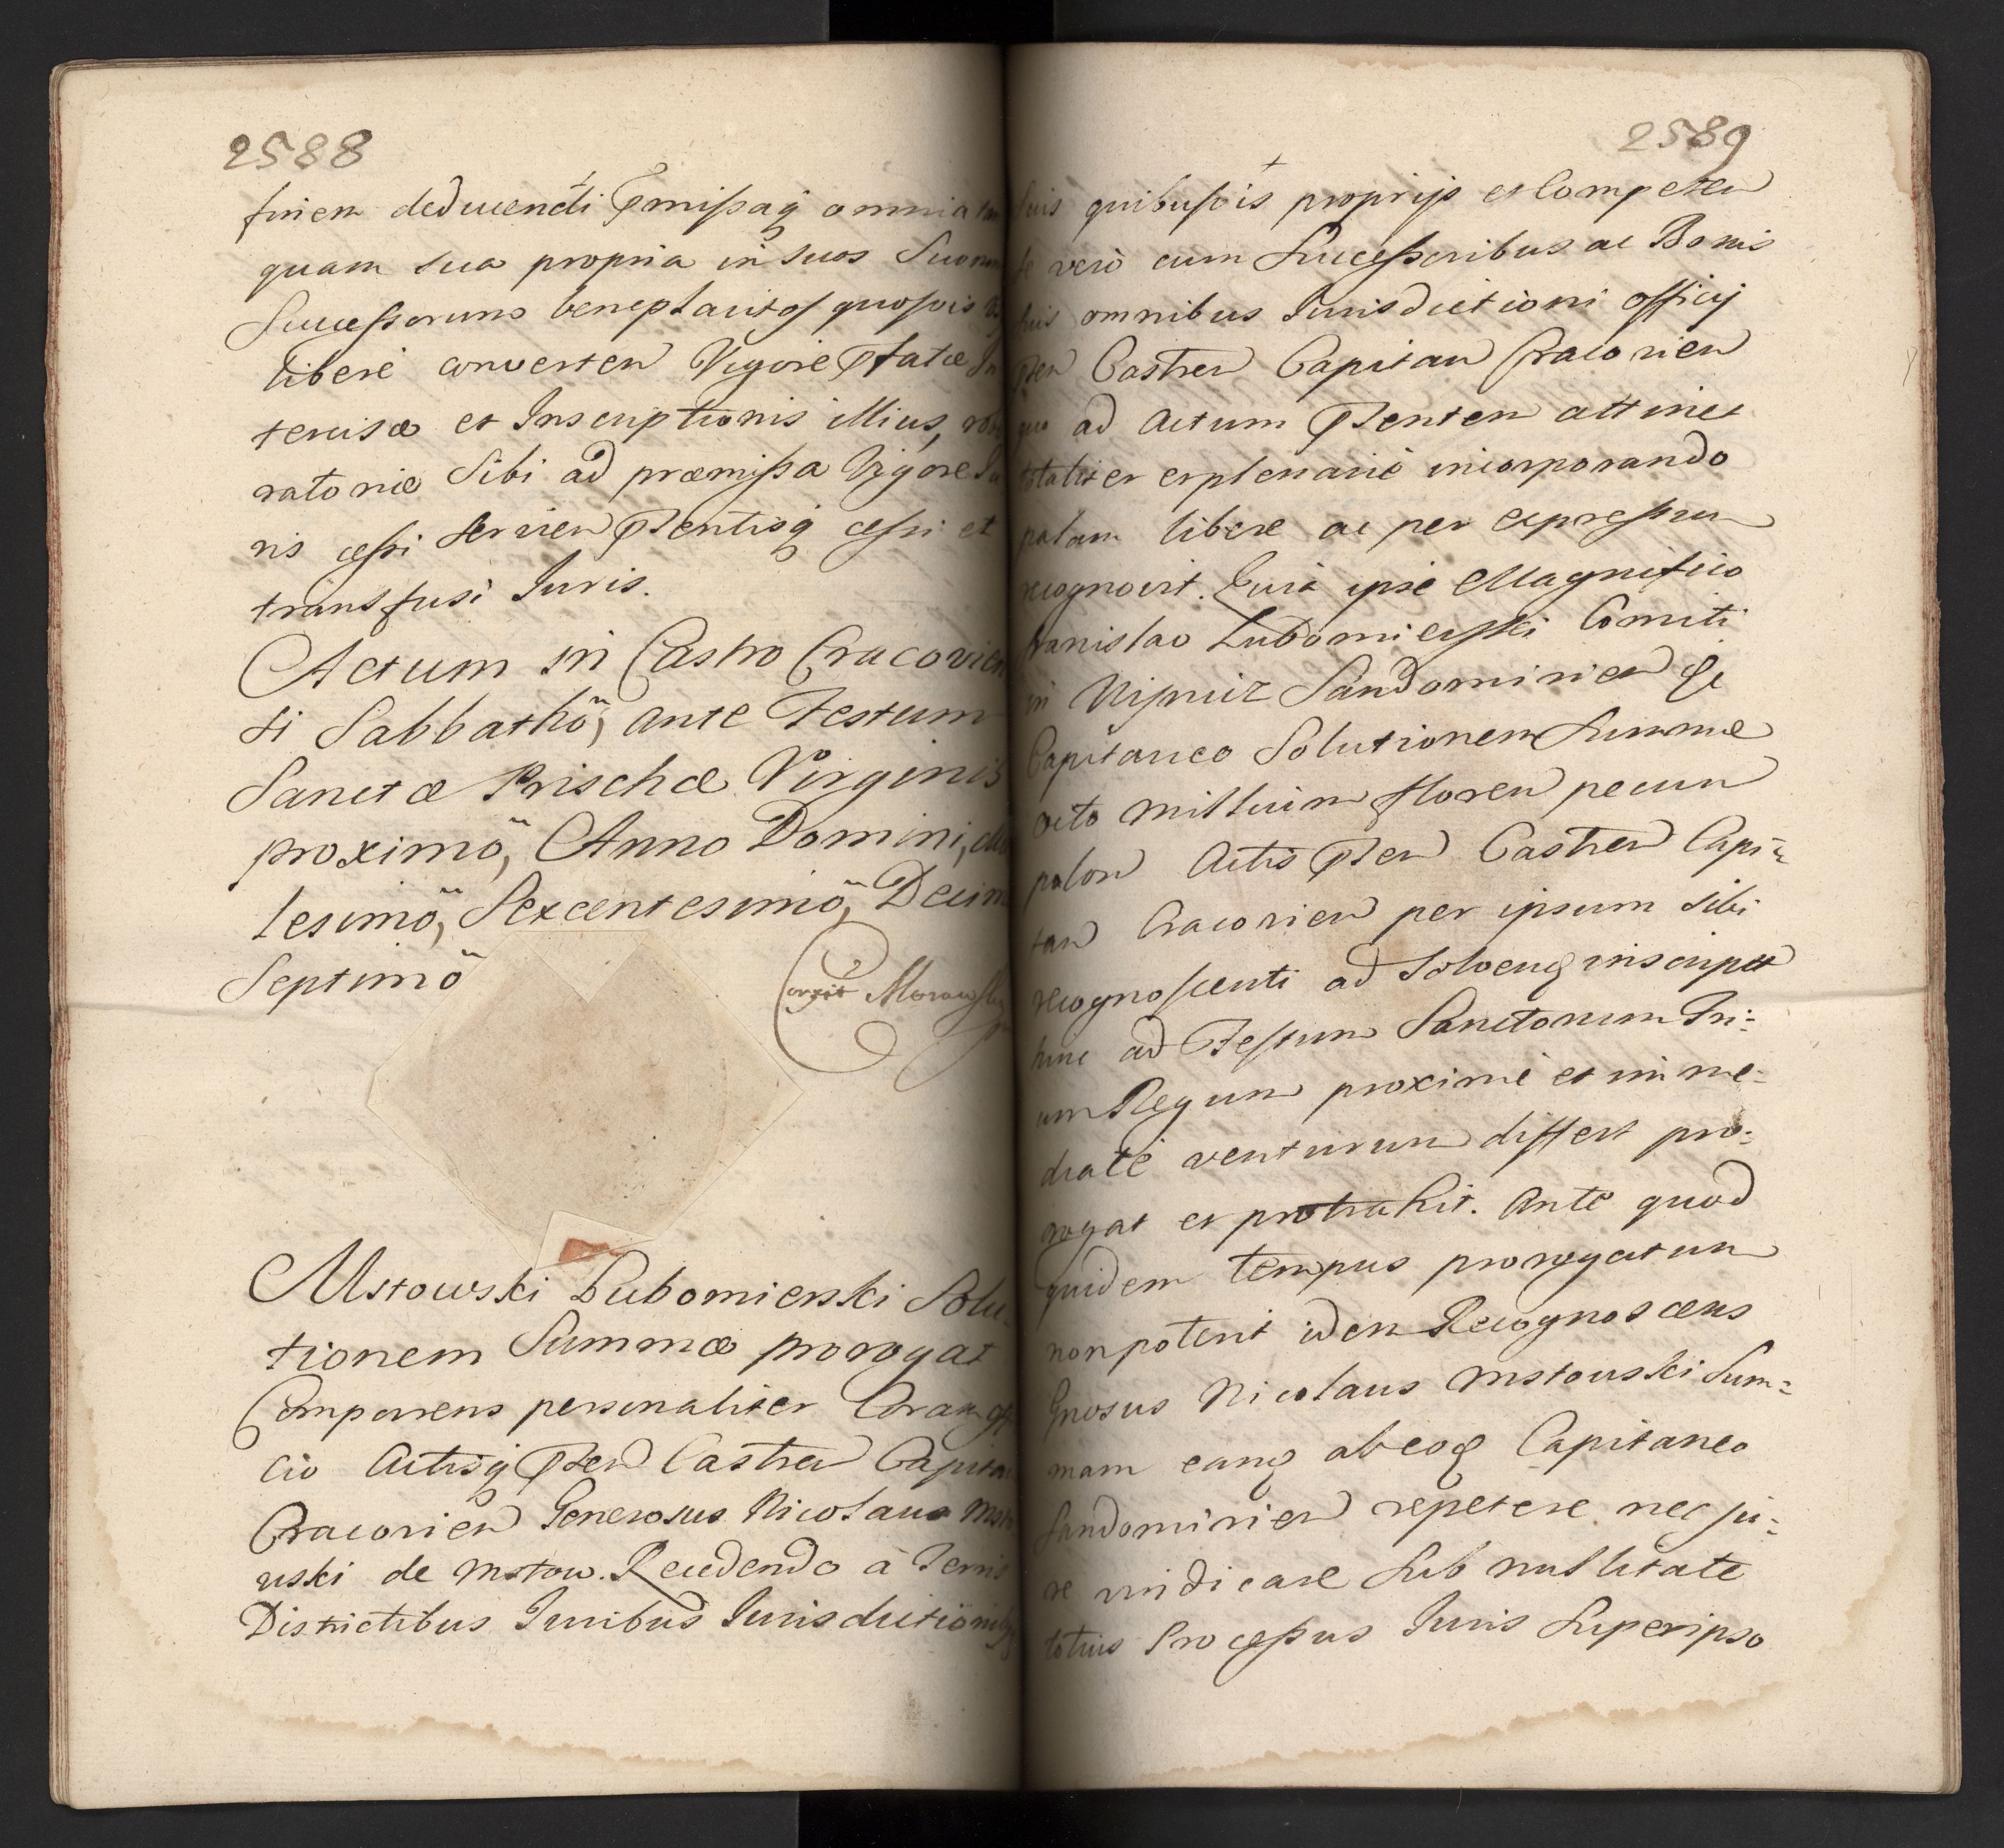 2588
finem deducendi Pmissaq omnia tan
quam sua propria in suos Suorum
Successorum beneplacitos quosvis
libere converten Vigore Pfatæ In
tercisæ et Inscriptionis illius, robo
ratoriæ Sibi ad præmissa Vigore Iu
ris cessi servien Psentisq cessi et
transfusi Iuris.
Actum in Castro Cracovien
si Sabbathö, ante Festum
Sanctæ Prischæ Virginis
proximö, Anno Domini, Mil
lesimö, Sexcentesimö, Decimö
Septimö
Corrit Morawsky
Mstowski Lubomierski Solu
tionem Summæ prorogat
Comparens personaliter Coram offi
cio Actisq Psen Castren Capitan
Cracovien Generosus Nicolaus Msto
wski de Mstow. Recedendo à Terris
Districtibus Iuribus Iurisdictionibq
2589
suis quibusvis proprijs et Competen
se verò cum Successoribus ac Bonis
suis omnibus Iurisdictioni officij
Psen Castren Capitan Cracovien
quo ad Actum Psenten attinet
totaliter explenarie incorporando
palam libere ac per expressum
recognovit. Quia ipse Magnifico
Stanislao Lubomierski Comiti
in Wisnicz Sandomirien &c
Capitaneo Solutionem Summæ
octo millium floren pecun
polon Actis Psen Castren Capi=
tan Cracovien per ipsum sibi
recognoscenti ad Solvenq inscript
hinc ad Festum Sanctorum Tri=
um Regum proxime et imme=
diate venturum differt pro=
rogat et protrahit. Ante quod
quidem tempus prorogatum
non poterit idem Recognoscens
Gnosus Nicolaus Mstouski Sum=
mam eanq ab eoq Capitaneo
Sandomirien repetere nec ju=
re vindicare Sub nullitate
totius Processus Iuris Superipso